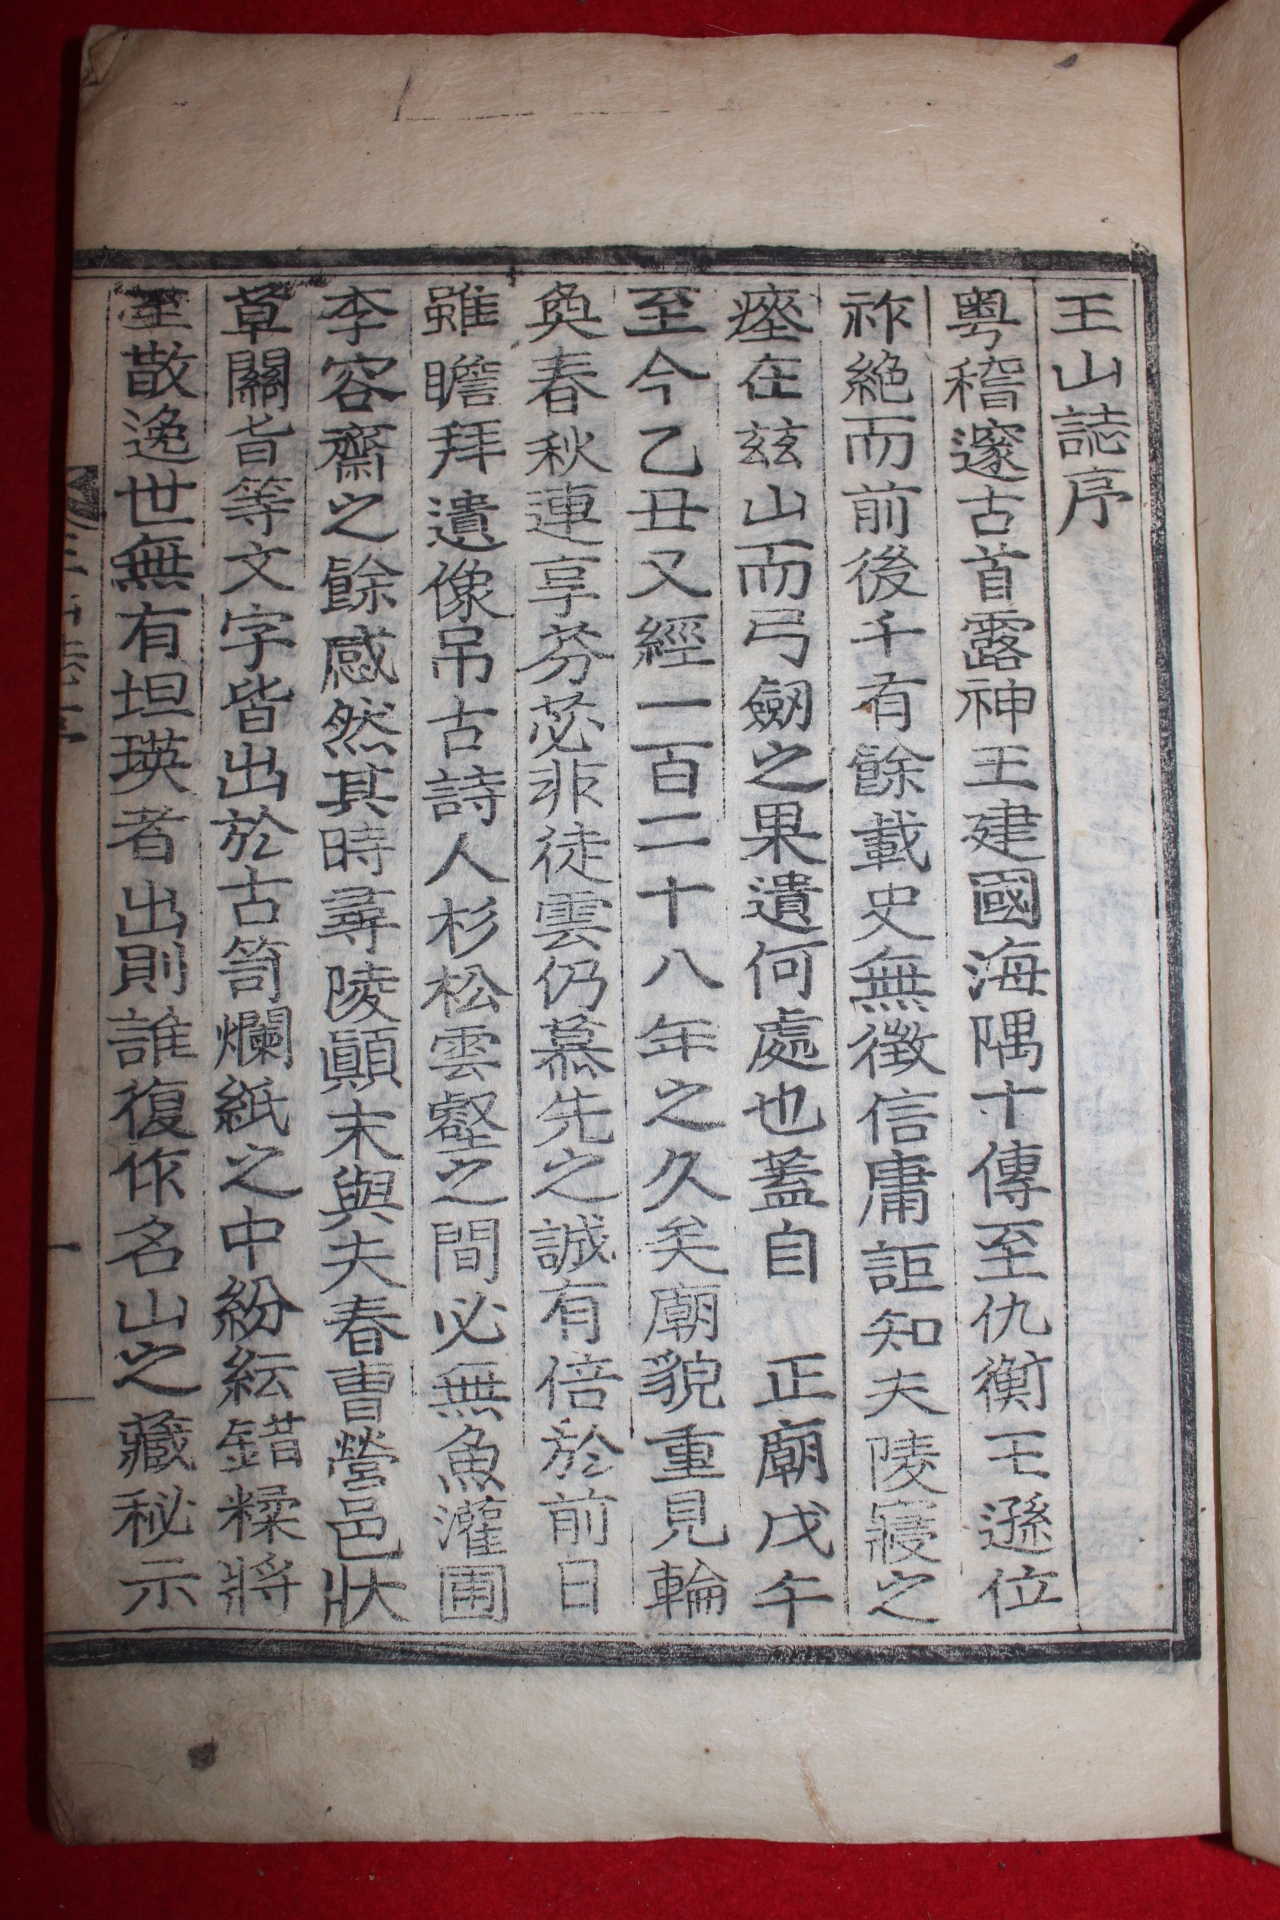 王山誌序
粤稽邃古首露神王建國海隅十傳至仇衡王遜位
祚絶而前後千有餘載史無徵信庸詎知夫陵寢之
瘞在玆山而弓劒之果遺何處也蓋自　正廟戊午
至今乙丑又經一百二十八年之久矣廟貌重見輪
奐春秋連享芬苾非徒雲仍慕先之誠有倍於前日
雖瞻拜遺像吊古詩人杉松雲壑之間必無魚灌圃
李容齋之餘感然其時尋陵顚末與夫春曹營邑狀
草關旨等文字皆出於古笥爛紙之中紛紜錯糅將
至散逸世無有坦瑛者出則誰復作名山之藏秘示
王山誌序
一